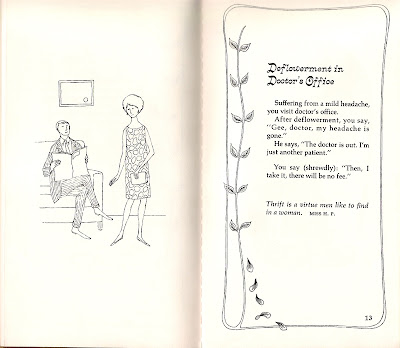 Deflowerment in
Doctor's Office
Suffering from a mild headache,
you visit doctor's office.
After deflowerment, you say,
"Gee, doctor, my headache is
gone."
He says, "The doctor is out. I'm
just another patient."
You say (shrewdly): "Then, I
take it, there will be no fee."
Thrift is a virtue men like to find
in a woman. MRS H. P.
13